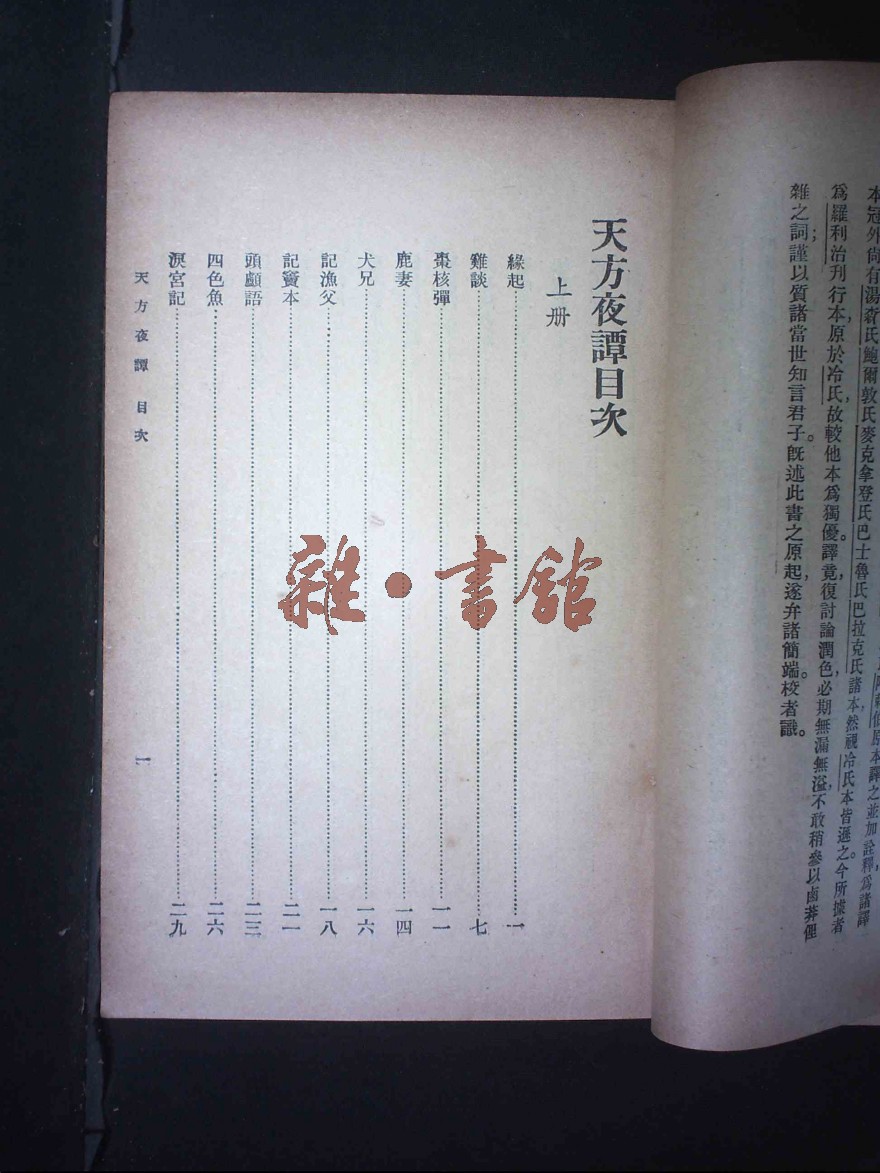 本冠外尙有湯森氏鮑爾敦氏麥克拿登氏巴士魯氏巴拉克氏諸本，然視冷氏本皆遜之。今所據者
爲羅利治刊行本，原於冷氏，故較他本爲獨優。譯竟，復討論潤色，必期無漏無溢，不敢稍參以鹵莽俚
雜之詞；謹以質諸當世知言君子。旣述此書之原起，遂弁諸簡端。校者識。
原本譯之，並加詮釋，爲諸譯
天方夜譚目次
上册
緣起 一
雞談 七
棗核彈 一一
鹿妻 一四
犬兄 一六
記漁父 一八
記竇本 二一
頭顱語 二三
四色魚 二六
淚宮記 二九
天方夜譚 目次
一
雜·書館